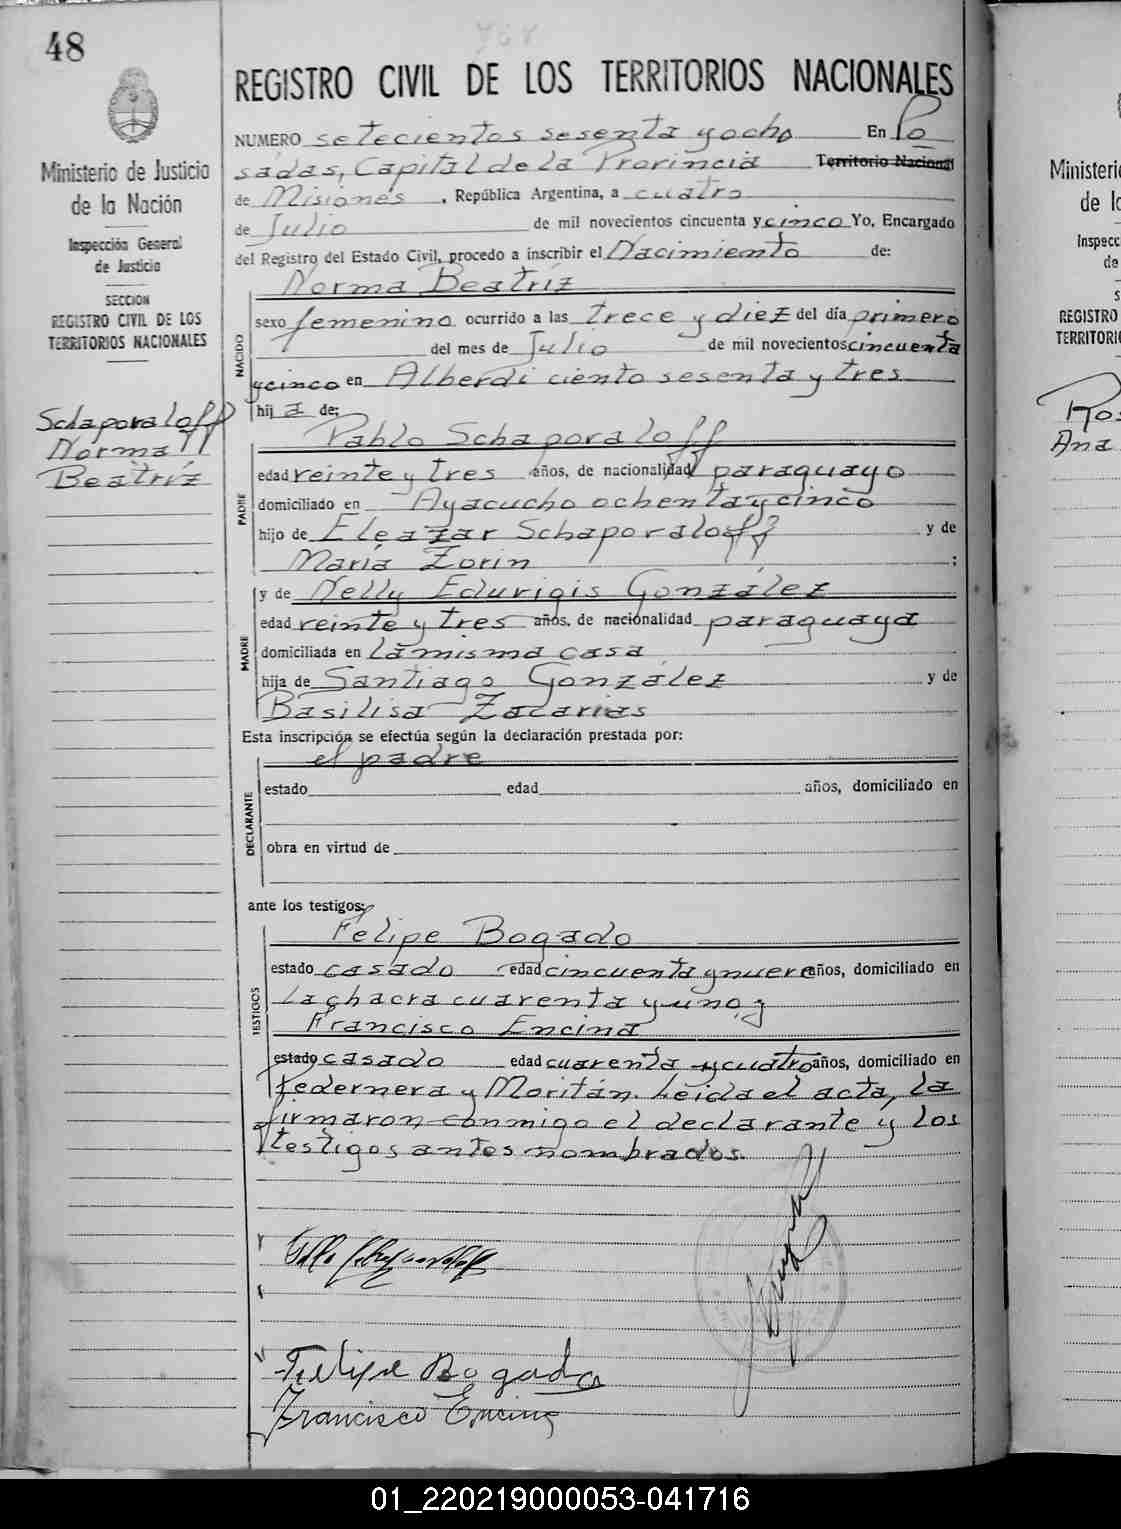 48
768
REGISTRO CIVIL DE LOS TERRITORIOS NACIONALES
Ministerio de Justicia
de la Nación
Inspección General
de Justicia
SECCION
REGISTRO CIVIL DE LOS
TERRITORIOS NACIONALES
Schaporaloff
Norma
Beatríz
NUMERO setecientos sesenta y ocho En Po
sadas, Capital de la Provincia Territorio Nacional
de Misiones, República Argentina, a cuatro
de Julio de mil novecientos cincuenta y cinco Yo, Encargado
del Registro del Estado Civil, procedo a inscribir el Nacimiento de:
Norma Beatríz
NACIDO
sexo femenino ocurrido a las trece y diez del día primero
del mes de Julio de mil novecientos cincuenta
y cinco en Alberdi ciento sesenta y tres
hija de:
Pablo Schaporaloff
PADRE
edad veinte y tres años, de nacionalidad paraguayo
domiciliado en Ayacucho ochenta y cinco
hijo de Eleazar Schaporaloff y de
María Zorin ;
y de Nelly Eduvigis González
MADRE
edad veinte y tres años, de nacionalidad paraguaya
domiciliada en la misma casa
hija de Santiago González y de
Basilisa Zacarias
Esta inscripción se efectúa según la declaración prestada por:
el padre
DECLARANTE
estado edad años, domiciliado en
obra en virtud de
ante los testigos:
Felipe Bogado
TESTIGOS
estado casado edad cincuenta y nueve años, domiciliado en
la chacra cuarenta y uno y
Francisco Encina
estado casado edad cuarenta y cuatro años, domiciliado en
Pedernera y Moritán. Leida el acta, la
firmaron conmigo el declarante y los
testigos antes nombrados.
Felipe Bogado
Francisco Encina
Ministeri
de la
Inspecc
de
S
REGISTRO
TERRITORI
Ros
Ana
01_220219000053-041716